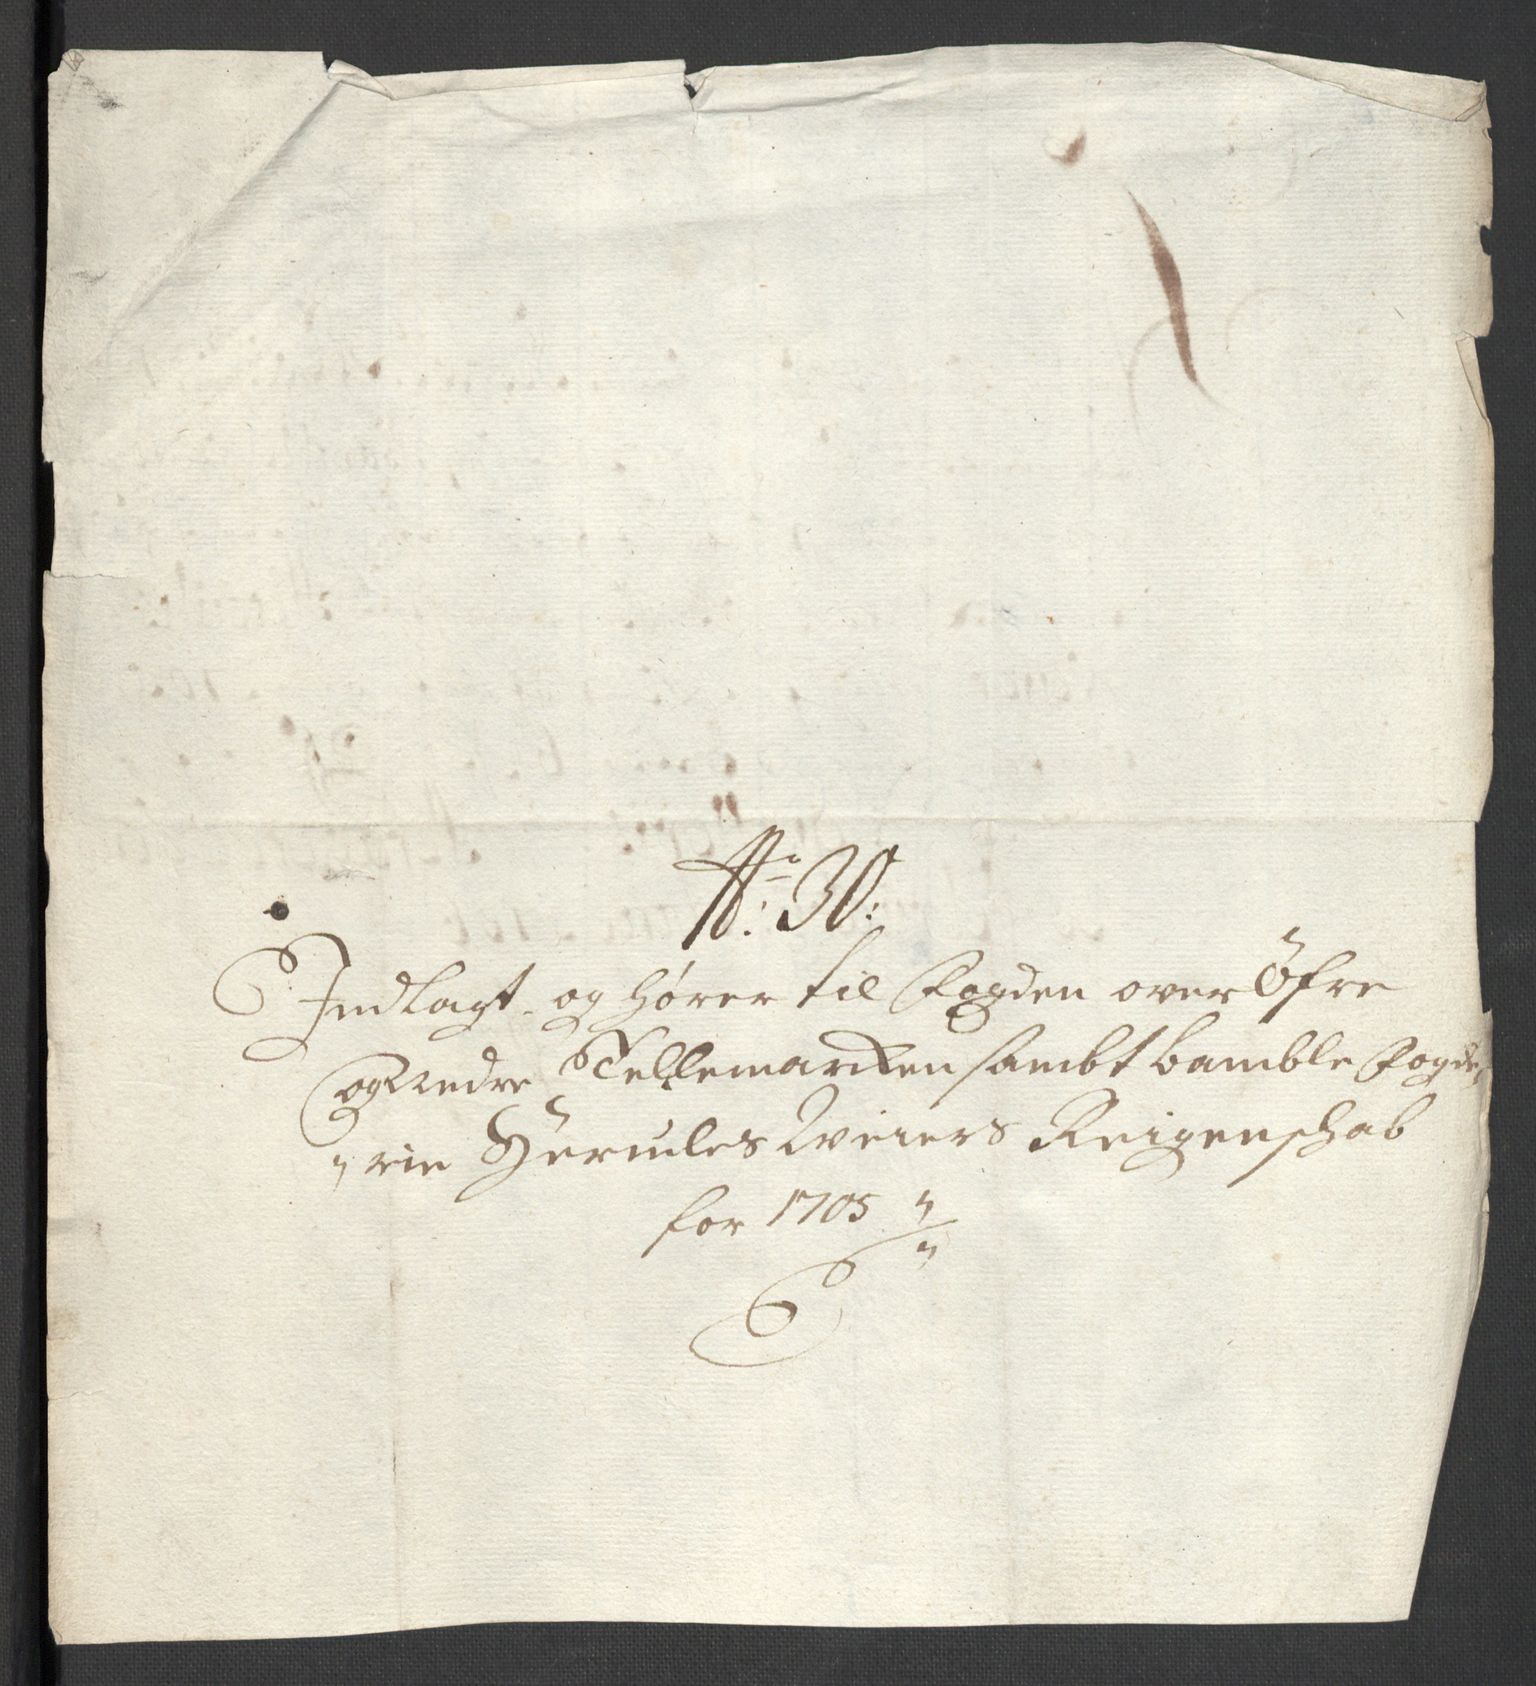 No: 30:
Indlagt og hører til Fogden over Øfre
og Nedre Tellemarken sambt bamble Fogde,,
,,rie Hercules Weiers Reigenschab
for 1705